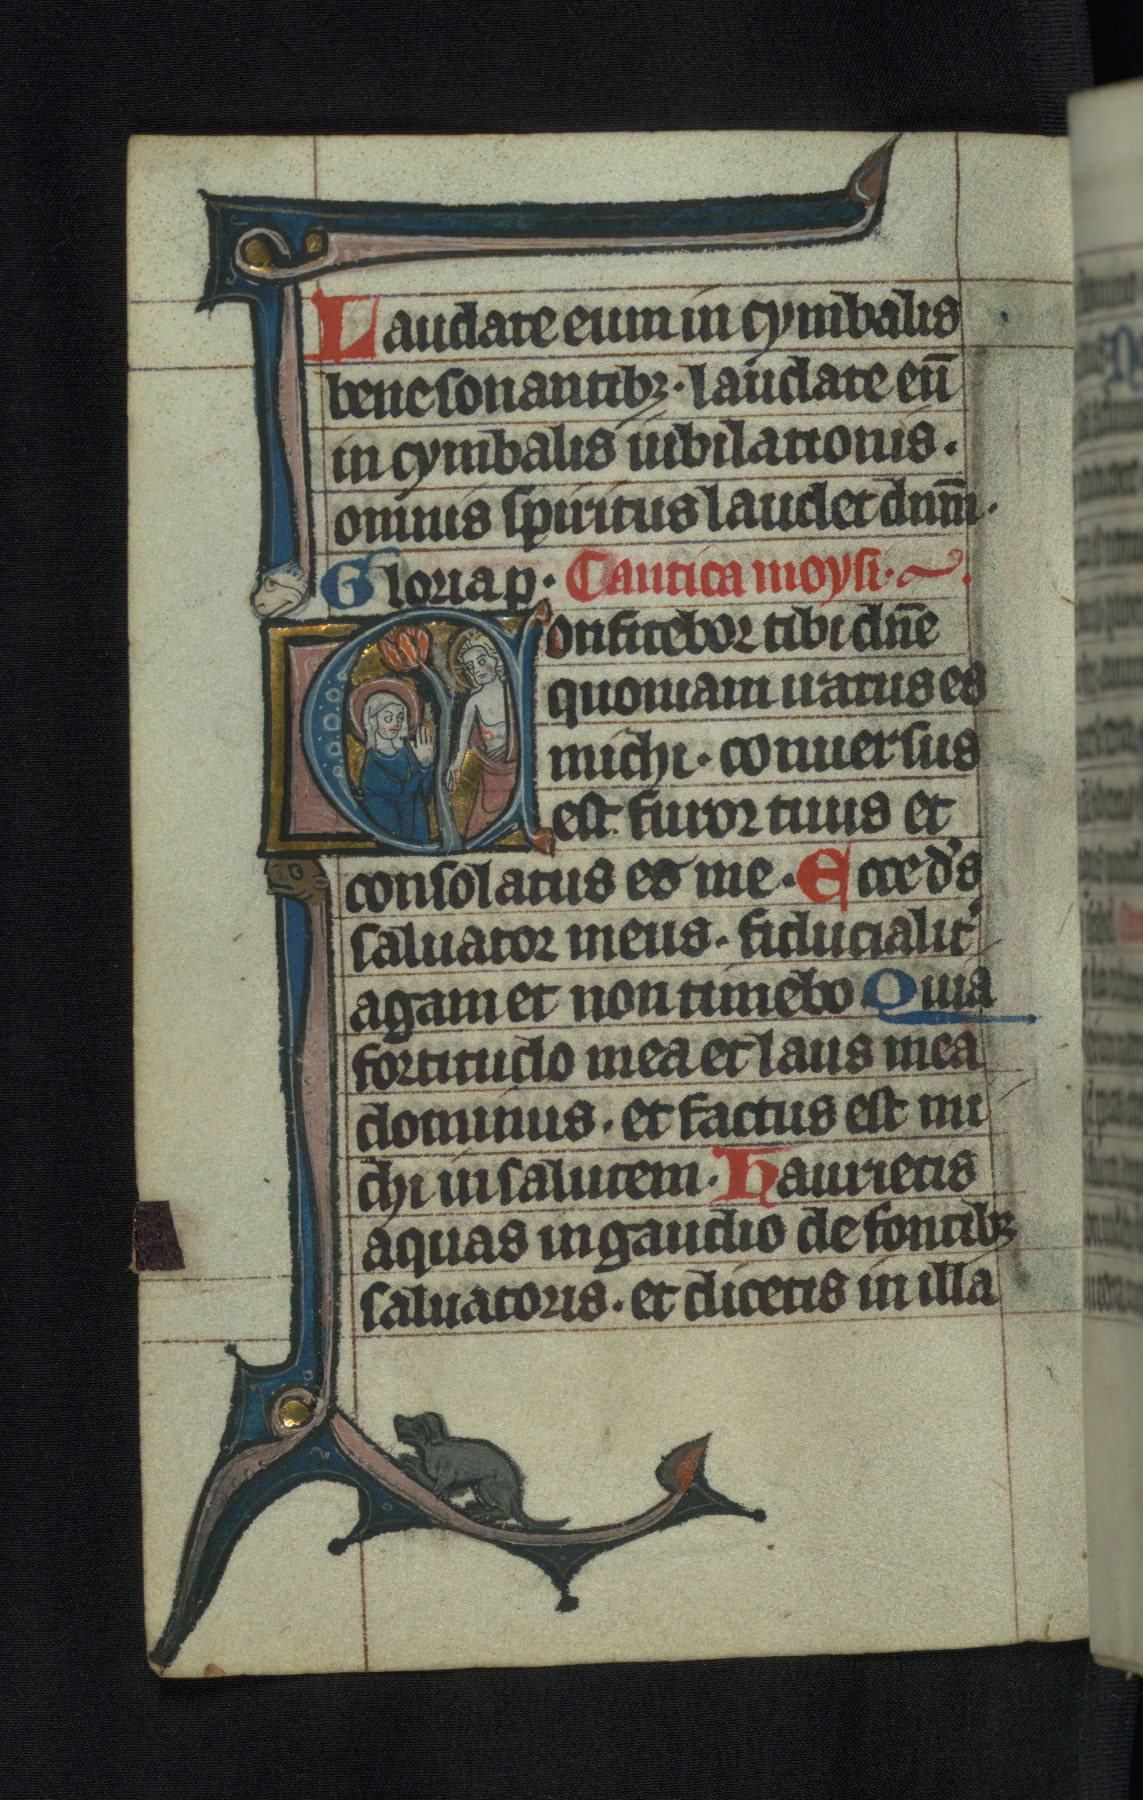 Laudate eum in cymbalis
benesonantibꝫ · laudate eū
in cymbalis iubilationis ·
omnis spiritus laudet dnm̄ ·
Gloria p · Cantica moysi ·
Confitebor tibi dn̄e
quoniam iratus es
michi · conuersus
est furor tuus et
consolatus es me · Ecce ds̄
saluator meus · fiducialit᷑
agam et non timebo Quia
fortitudo mea et laus mea
dominus · et factus est mi
chi in salutem · Haurietis
aquas in gaudio de fontibꝫ
saluatoris · et dicetis in illa